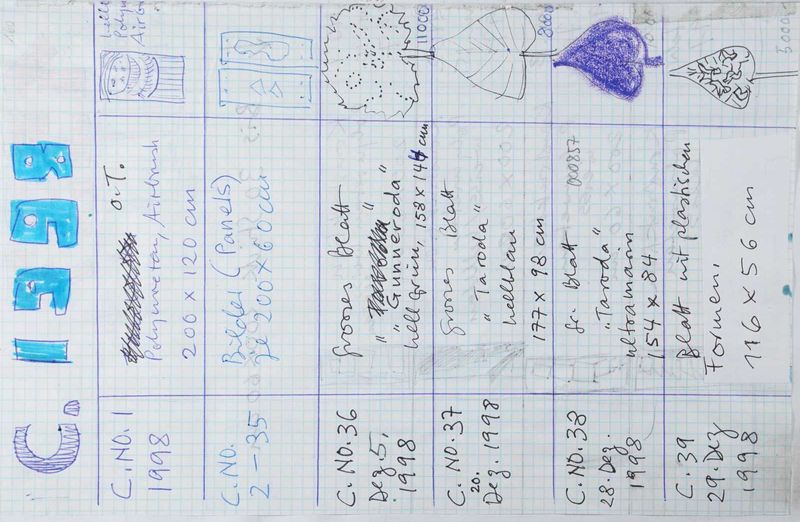 C. 1998
C. NO. 1
1998
O.T.
Polyuretan, Airbrush
200 x 120 cm
C. NO.
2 – 35
Bilder (Panels)
je 200 x 60 cm
C. NO. 36
Dez. 5.
1998
Grosses Blatt
"Gunneroda"
hellgrün, 158 x 146 cm
11000
C. NO. 37
20.
Dez. 1998
Grosses Blatt
"Taroda"
hellblau
177 x 98 cm
8000
C. NO. 38
28. Dez.
1998
Gr. Blatt 000857
"Taroda"
ultramarin
154 x 84
C. 39
29. Dez
1998
Blatt mit plastischen
Formen,
116 x 56 cm